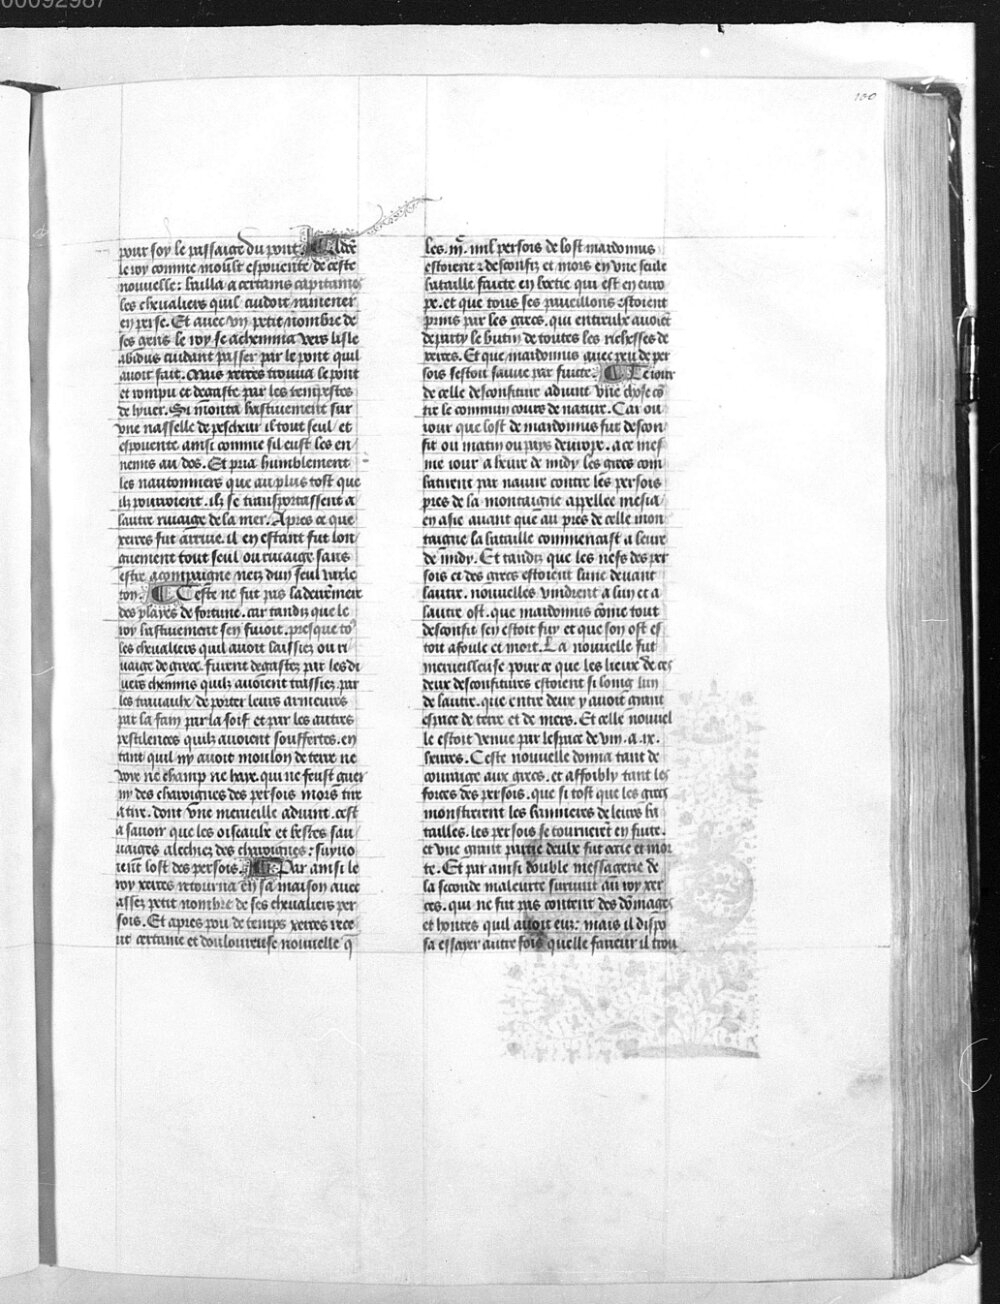 00092987
100
pour soy le passaige du pont. Adõc
le roy comme moult espouente de ceste
nouuelle: bailla a certains capitaines
les cheualiers quil cuidoit ramener
en perse. Et auec vn petit nombre de
ses gens le roy se achemina vers lisle
abidus cuidant passer par le pont quil
auoit fait. Mais xerces trouua le pont
et rompu et degaste par les tempestes
de lyuer. Si monta hastiuement sur
vne nasselle de pescheur il tout seul et
espouente ainsi comme sil eust les en
nemis au dos. Et pria humblement
les nautonniers que au plus tost que
ilz pourroient. ilz se transportassent a
lautre riuaige de la mer. Apres ce que
xerces fut arriue. il en estant fut lon
guement tout seul ou riuaige sans
estre acompaigne neiz dun seul varle
ton. Ceste ne fut pas la derreniere
des playes de fortune. car tandiz que le
roy hastiuement sen fuioit. presque to9
les cheualiers quil auoit laissiez ou ri
uaige de grece. furent degastez par les di
uers chemins quilz auoient traissiez par
les trauaulx de porter leurs armeures
par la fain par la soif et par les autres
pestilences quilz auoient souffertes. en
tant quil ny auoit moulon de terre ne
voye ne champ ne haye. qui ne feust guer
ny des charoignes des persois mors tire
a tire. dont vne merueille aduint. cest
a sauoir que les oiseaulx et bestes sau
uaiges alechiez des charoignes: suyuo
ient lost des persois. Par ainsi le
roy xerces retourna en sa maison auec
assez petit nombre de ses cheualiers per
sois. Et apres pou de temps xerces rece
ut certaine et douloureuse nouuelle q̃
les .iii.c mil persois de lost mardonius
estoient desconfiz et mors en vne seule
bataille faicte en boetie qui est en euro
pe. et que tous ses paueillons estoient
prins par les grecs. qui entreulx auoiẽt
departy le butin de toutes les richesses de
xerces. Et que mardonius auec peu de per
sois sestoit sauue par fuite. Le iour
de celle desconfiture aduint vne chose cõ
tre le commun cours de nature. Car ou
iour que lost de mardonius fut descon
fit ou matin ou pays deurope. a ce mes
me iour a heure de midy les grecs com
batirent par nauire contre les persois
pres de la montaigne appellee mesia
en asie auant que au pres de celle mon
taigne la bataille commencast a leure
de midy. Et tandiz que les nefs des per
sois et des grecs estoient lune deuant
lautre. nouuelles vindrent a lun et a
lautre ost. que mardonius cõme tout
desconfit sen estoit fuy et que son ost es
toit afoule et mort. La nouuelle fut
merueilleuse pour ce que les lieux de ces
deux desconfitures estoient si loing lun
de lautre. que entre deux y auoit grant
espace de terre et de mers. Et celle nouuel
le estoit venue par lespace de .viii. a .ix.
heures. Ceste nouuelle donna tant de
couraige aux grecs. et affoibly tant les
forces des persois. que si tost que les grecs
monstrerent les bannieres de leurs ba
tailles. les persois se tournerẽt en fuite.
et vne grant partie deulx fut occie et mor
te. Et par ainsi double messagerie de
la seconde maleurte suruint au roy xer
ces. qui ne fut pas content des dõmages
et hontes quil auoit euz: mais il dispo
sa essayer autre fois quelle faueur il trou